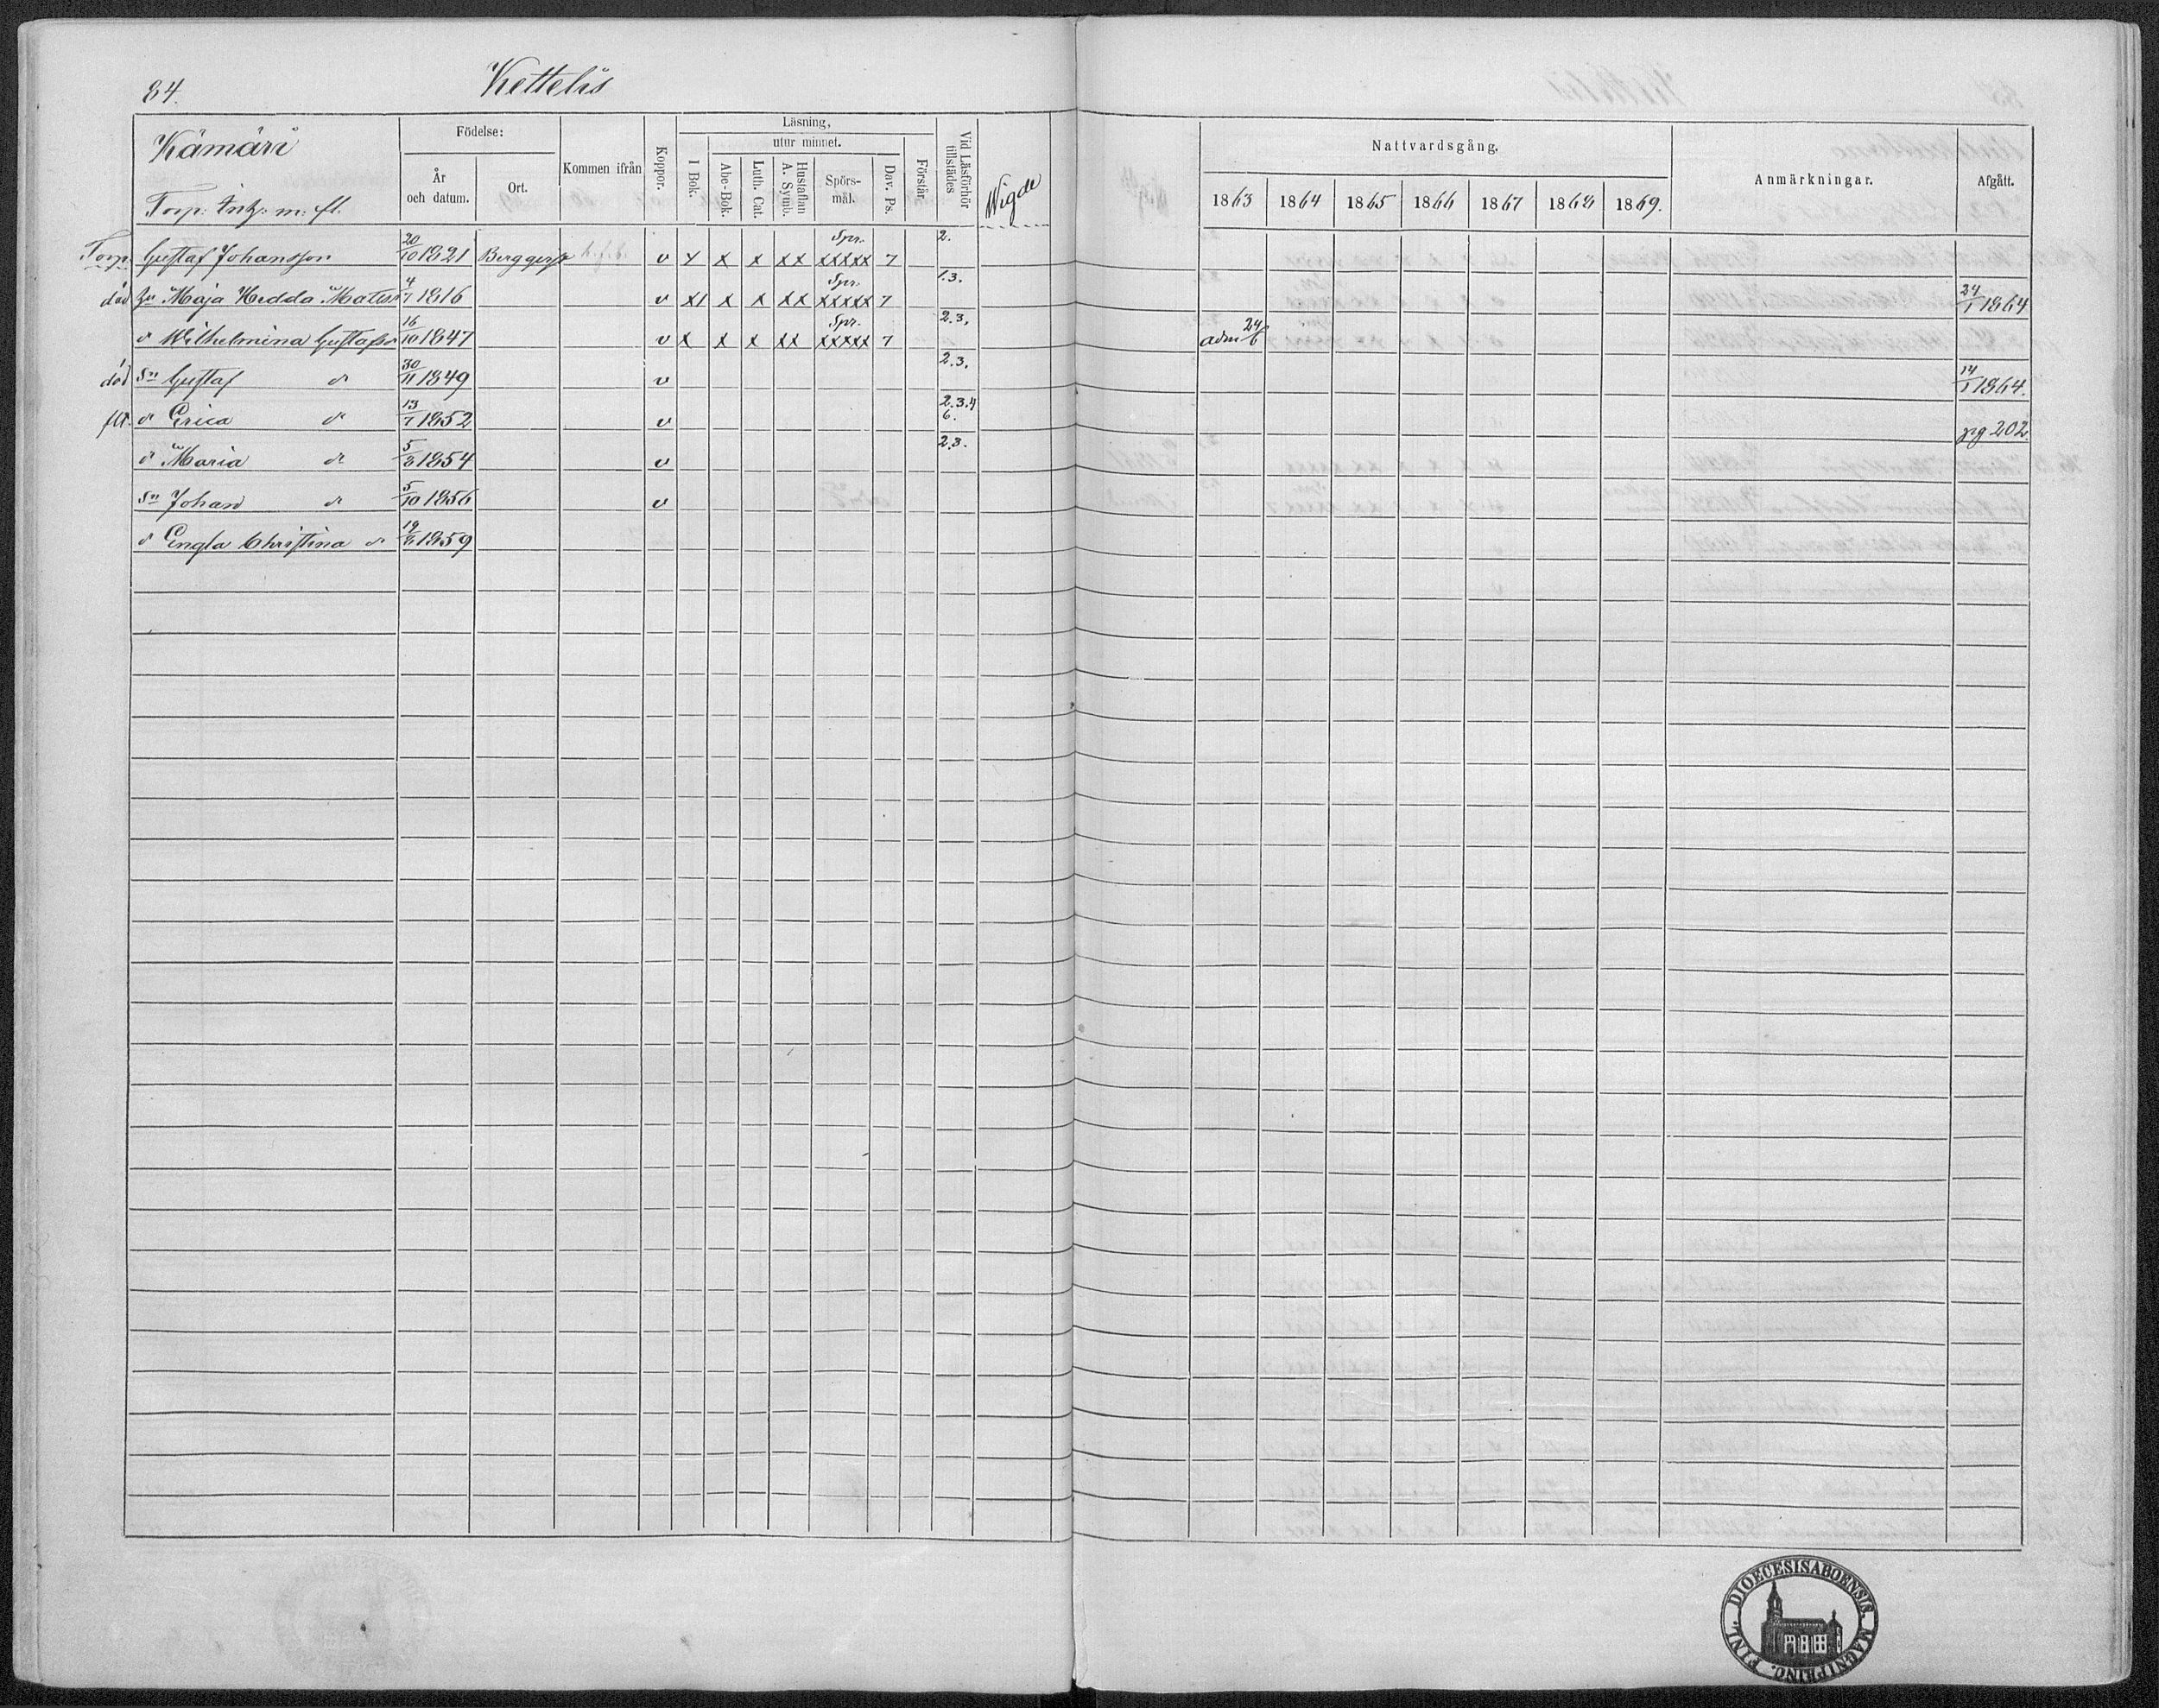 84.
Kettelis
Kämäri
Torp: Intr: m: fl.
Födelse:
År och datum.
Ort.
Kommen ifrån
Koppor.
Läsning,
utur minnet.
I Bok.
Abc-Bok.
Luth. Cat.
Hustaflan A. Symb.
Spörs-mål.
Dav. Ps.
Förstår.
Vid Läsförhör tillstädes
Wigde
Nattvardsgång.
1863 1864 1865 1866 1867 1868 1869.
Anmärkningar.
Afgått.
Torp. Gustaf Johansson 20/10 1821 v x x x xx Spr. xxxxx 7 2.
död Maja Hedda Matts 4/7 1816 v xı x x xx Spr. xxxxx 7 1.3. 24/1 1864
d Wilhelmina Gustafs 16/10 1847 v x x x xx Spr. xxxxx 7 2.3. adm 24/6
död Sn Gustaf d 30/11 1849 v 2.3. 14/1 1864.
fl. d Erica d 13/7 1852 v 2.3.4 6. pg 202.
d Maria d 5/3 1854 v 2.3.
Sn Johan d 5/10 1856 v
d Engla Christina d 1859
FINL. DIOECESIS ABOENSIS. MAGNI PRINC.